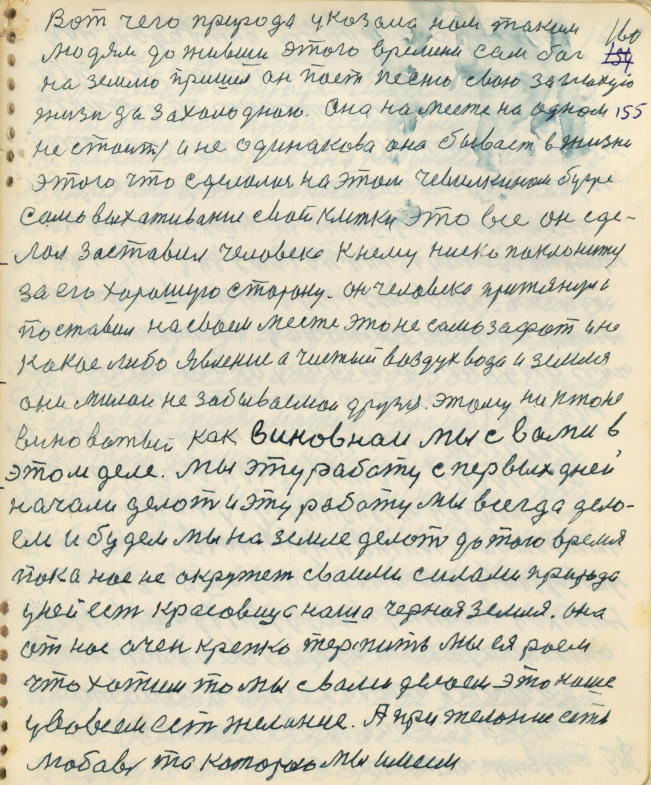 Вот чего природа указала нам таким 160
людям доживши этого времени сам бог 154
на землю пришел он поет песню свою за тихую
жизн да за холодною. Она на месте на одном 155
не стоит и не одинакова она бывает в жизни
этого что сделалося на этом Чевилкином бугре
само выхаживание свой клетки это все он сде-
лал заставил человека к нему ниско поклонитц
за его хорошую сторону. он человека притянул и
поставил на своем месте это не само зафат и не
какое либо явление а чистый воздух вода и земля
они милаи не забываемаи друзя. этому ни хто не
виноватый как виновнаи мы с вами в
этом деле. мы эту работу с первых дней
начали делот и эту работу мы всегда дело-
ем и будем мы на земле делот до того время
пока нас не окружет сваими силами природа
у ней ест красовица наша черная земля. она
от нас очен крепко терпить мы ея роем
что хотим то мы с вами делоем это наше
у вовсем ест желание. А при желание есть
любавь та которою мы имеем